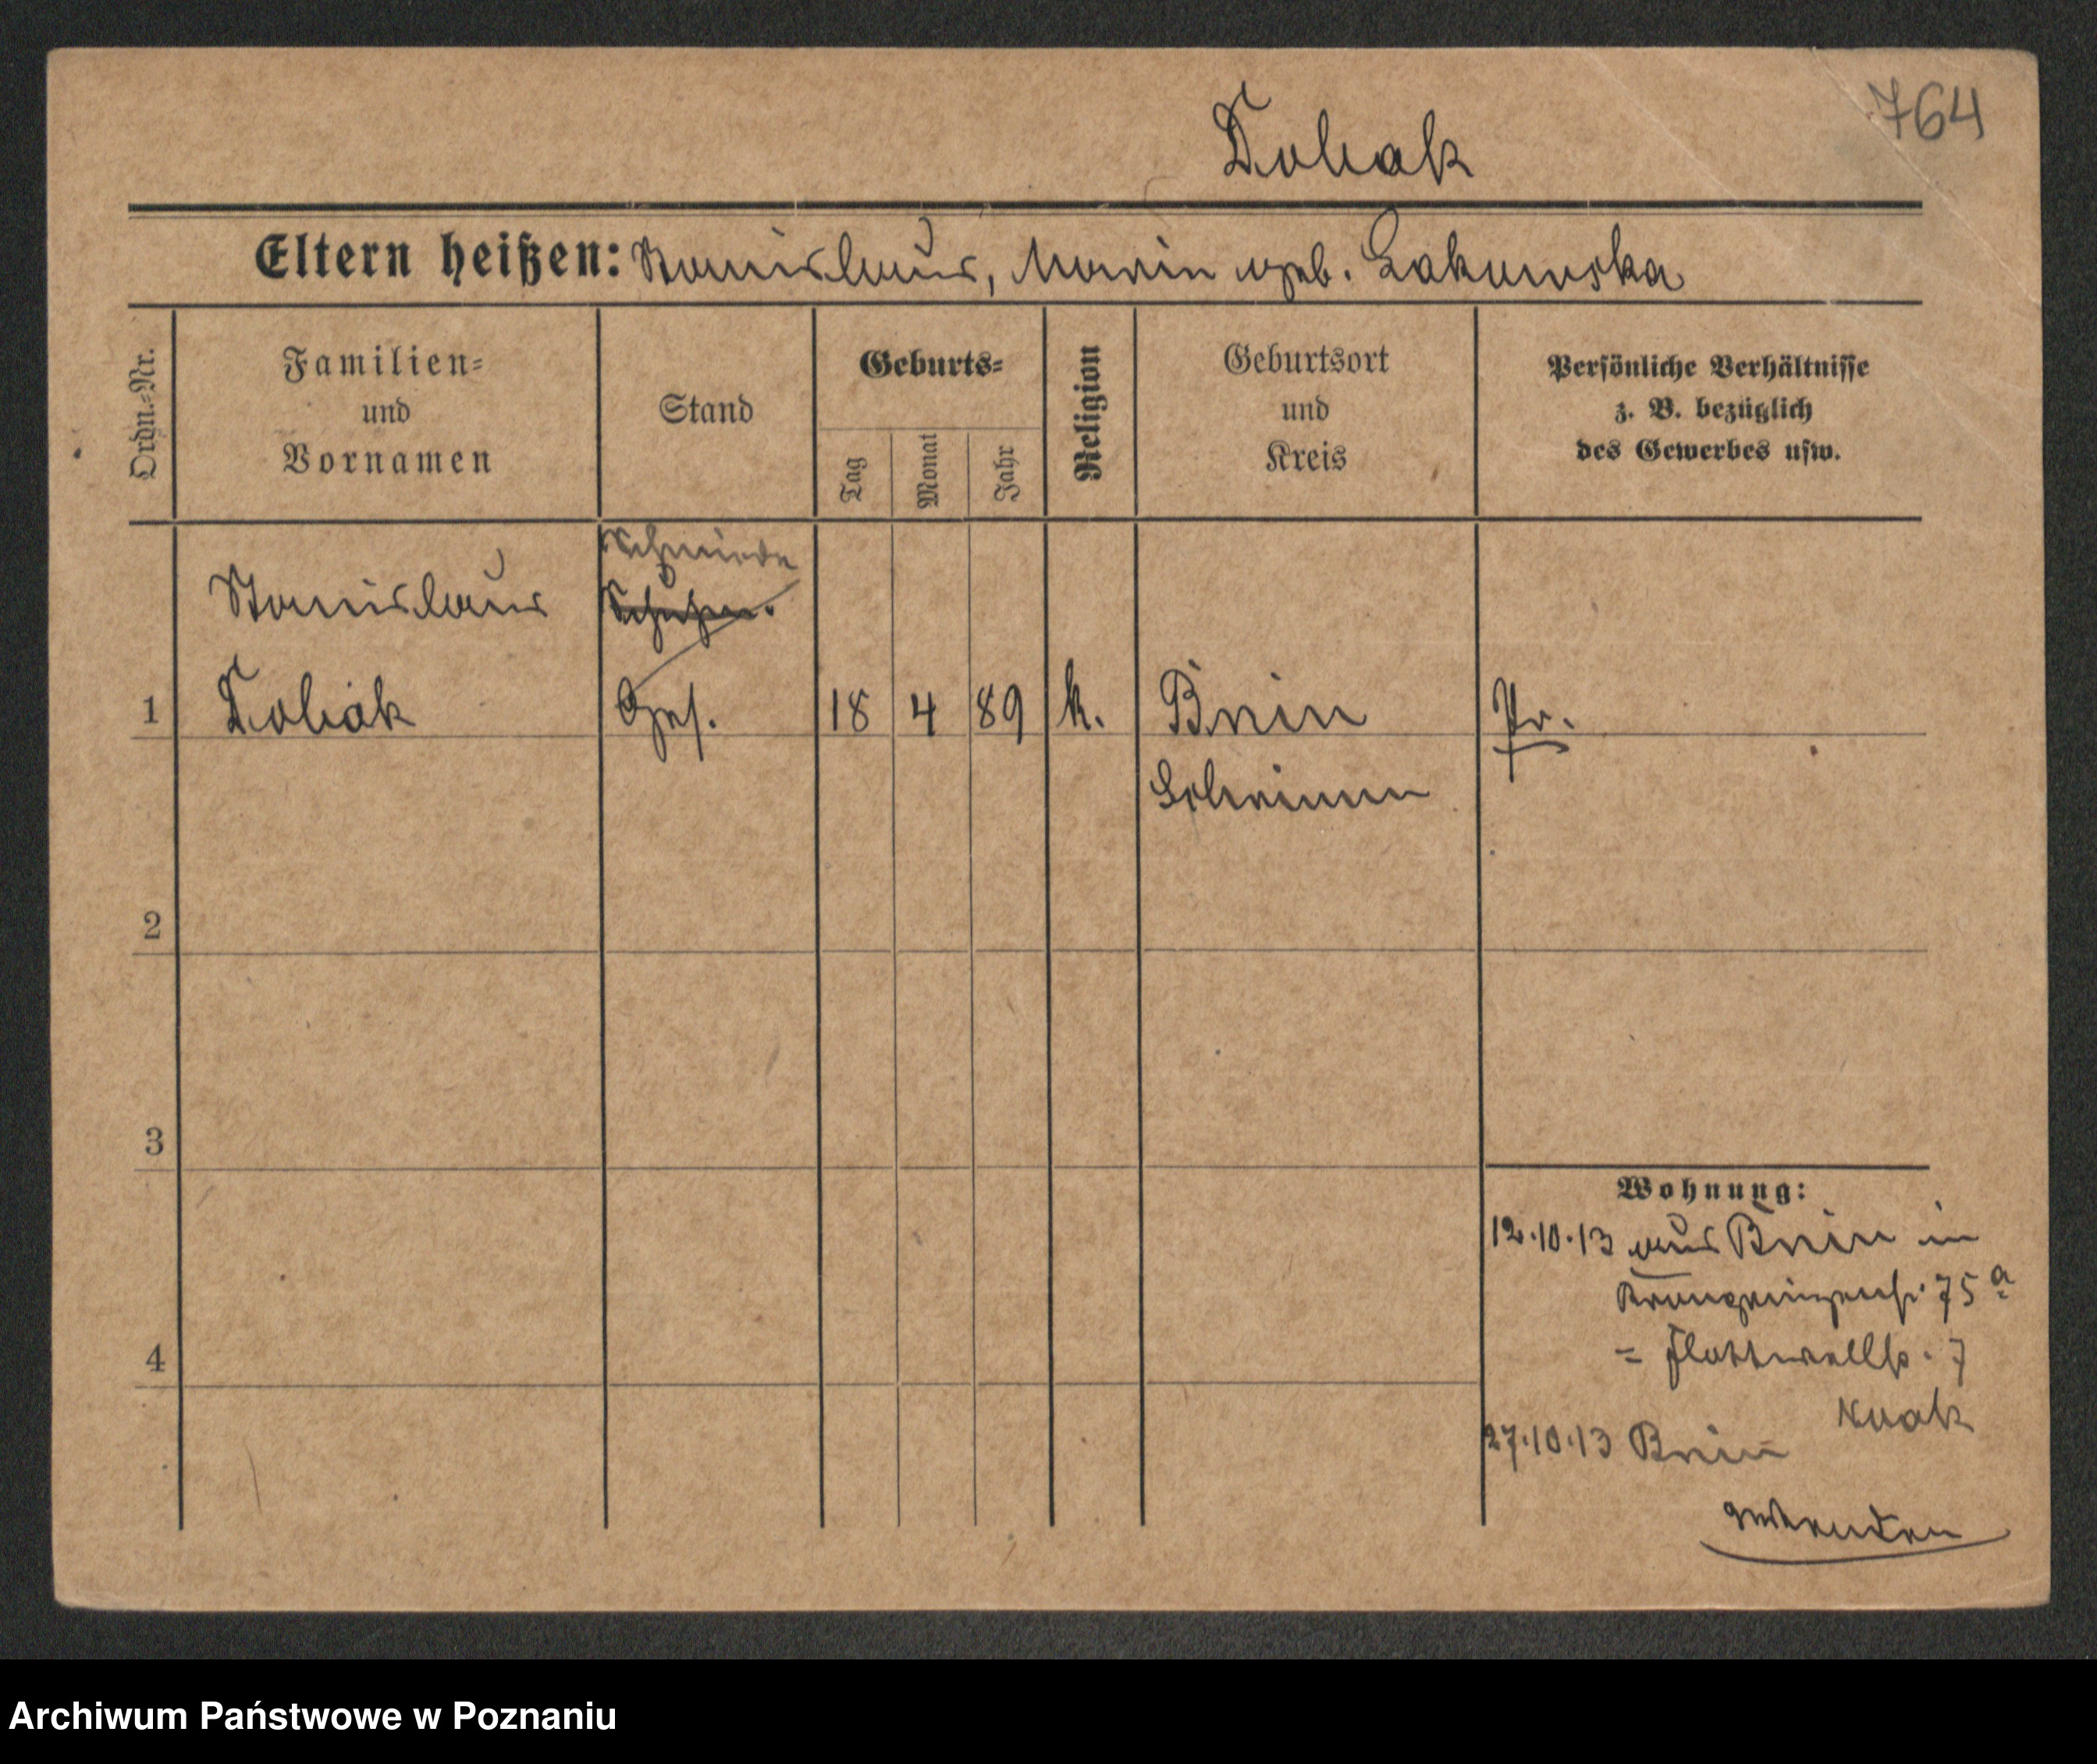 764
Tobiak
Eltern heißen: Stanislaus, Maria geb. Lakomska
Ordn.-Nr.
Familien-
und
Vornamen
Stand
Geburts-
Tag
Monat
Jahr
Religion
Geburtsort
und
Kreis
Persönliche Verhältnisse
z. B. bezüglich
des Gewerbes usw.
Schmiede
Stanislaus
1 Tobiak Ges. 18 4 89 k. Bnin Pr.
Schrimm
2
3
Wohnung:
12.10.13 aus Bnin in
Kronprinzenst. 75a
= Flottwellst. 7
4
27.10.13 Bnin
wenden
Archiwum Państwowe w Poznaniu